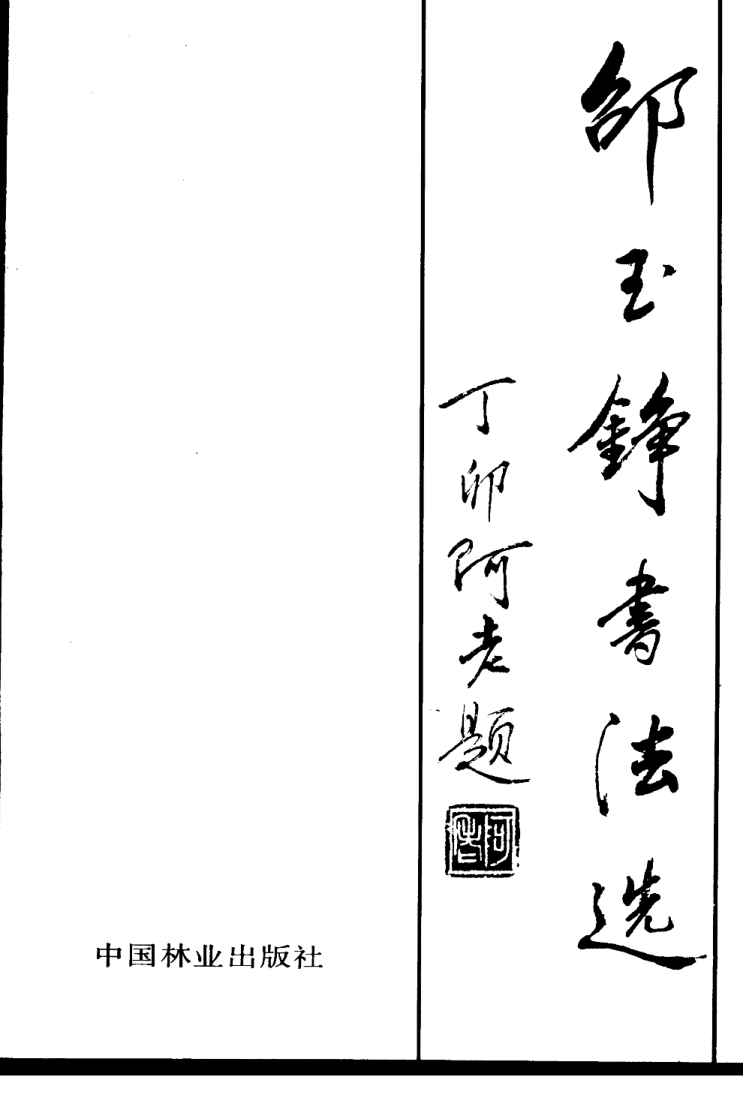 邵玉铮书法选
丁卯阿老题
阿老
中国林业出版社